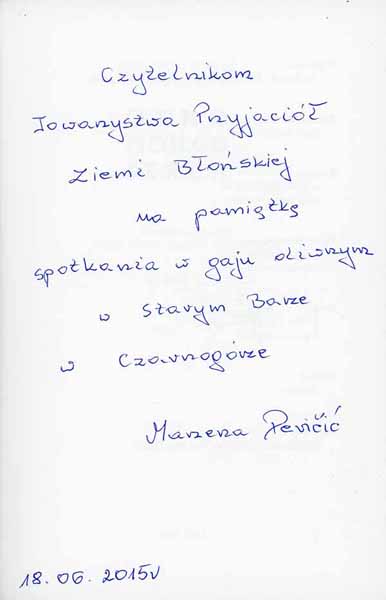 Czytelnikom
Towarzystwa Przyjaciół
Ziemi Błońskiej
na pamiątkę
spotkania w gaju oliwnym
w Starym Barze
w Czarnogórze
Marzena Peričić
18.06.2015r